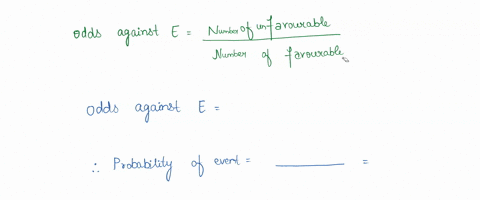 Odds against E = Number of unfavourable
Number of favourable
Odds against E =
∴ Probability of event = ______ =